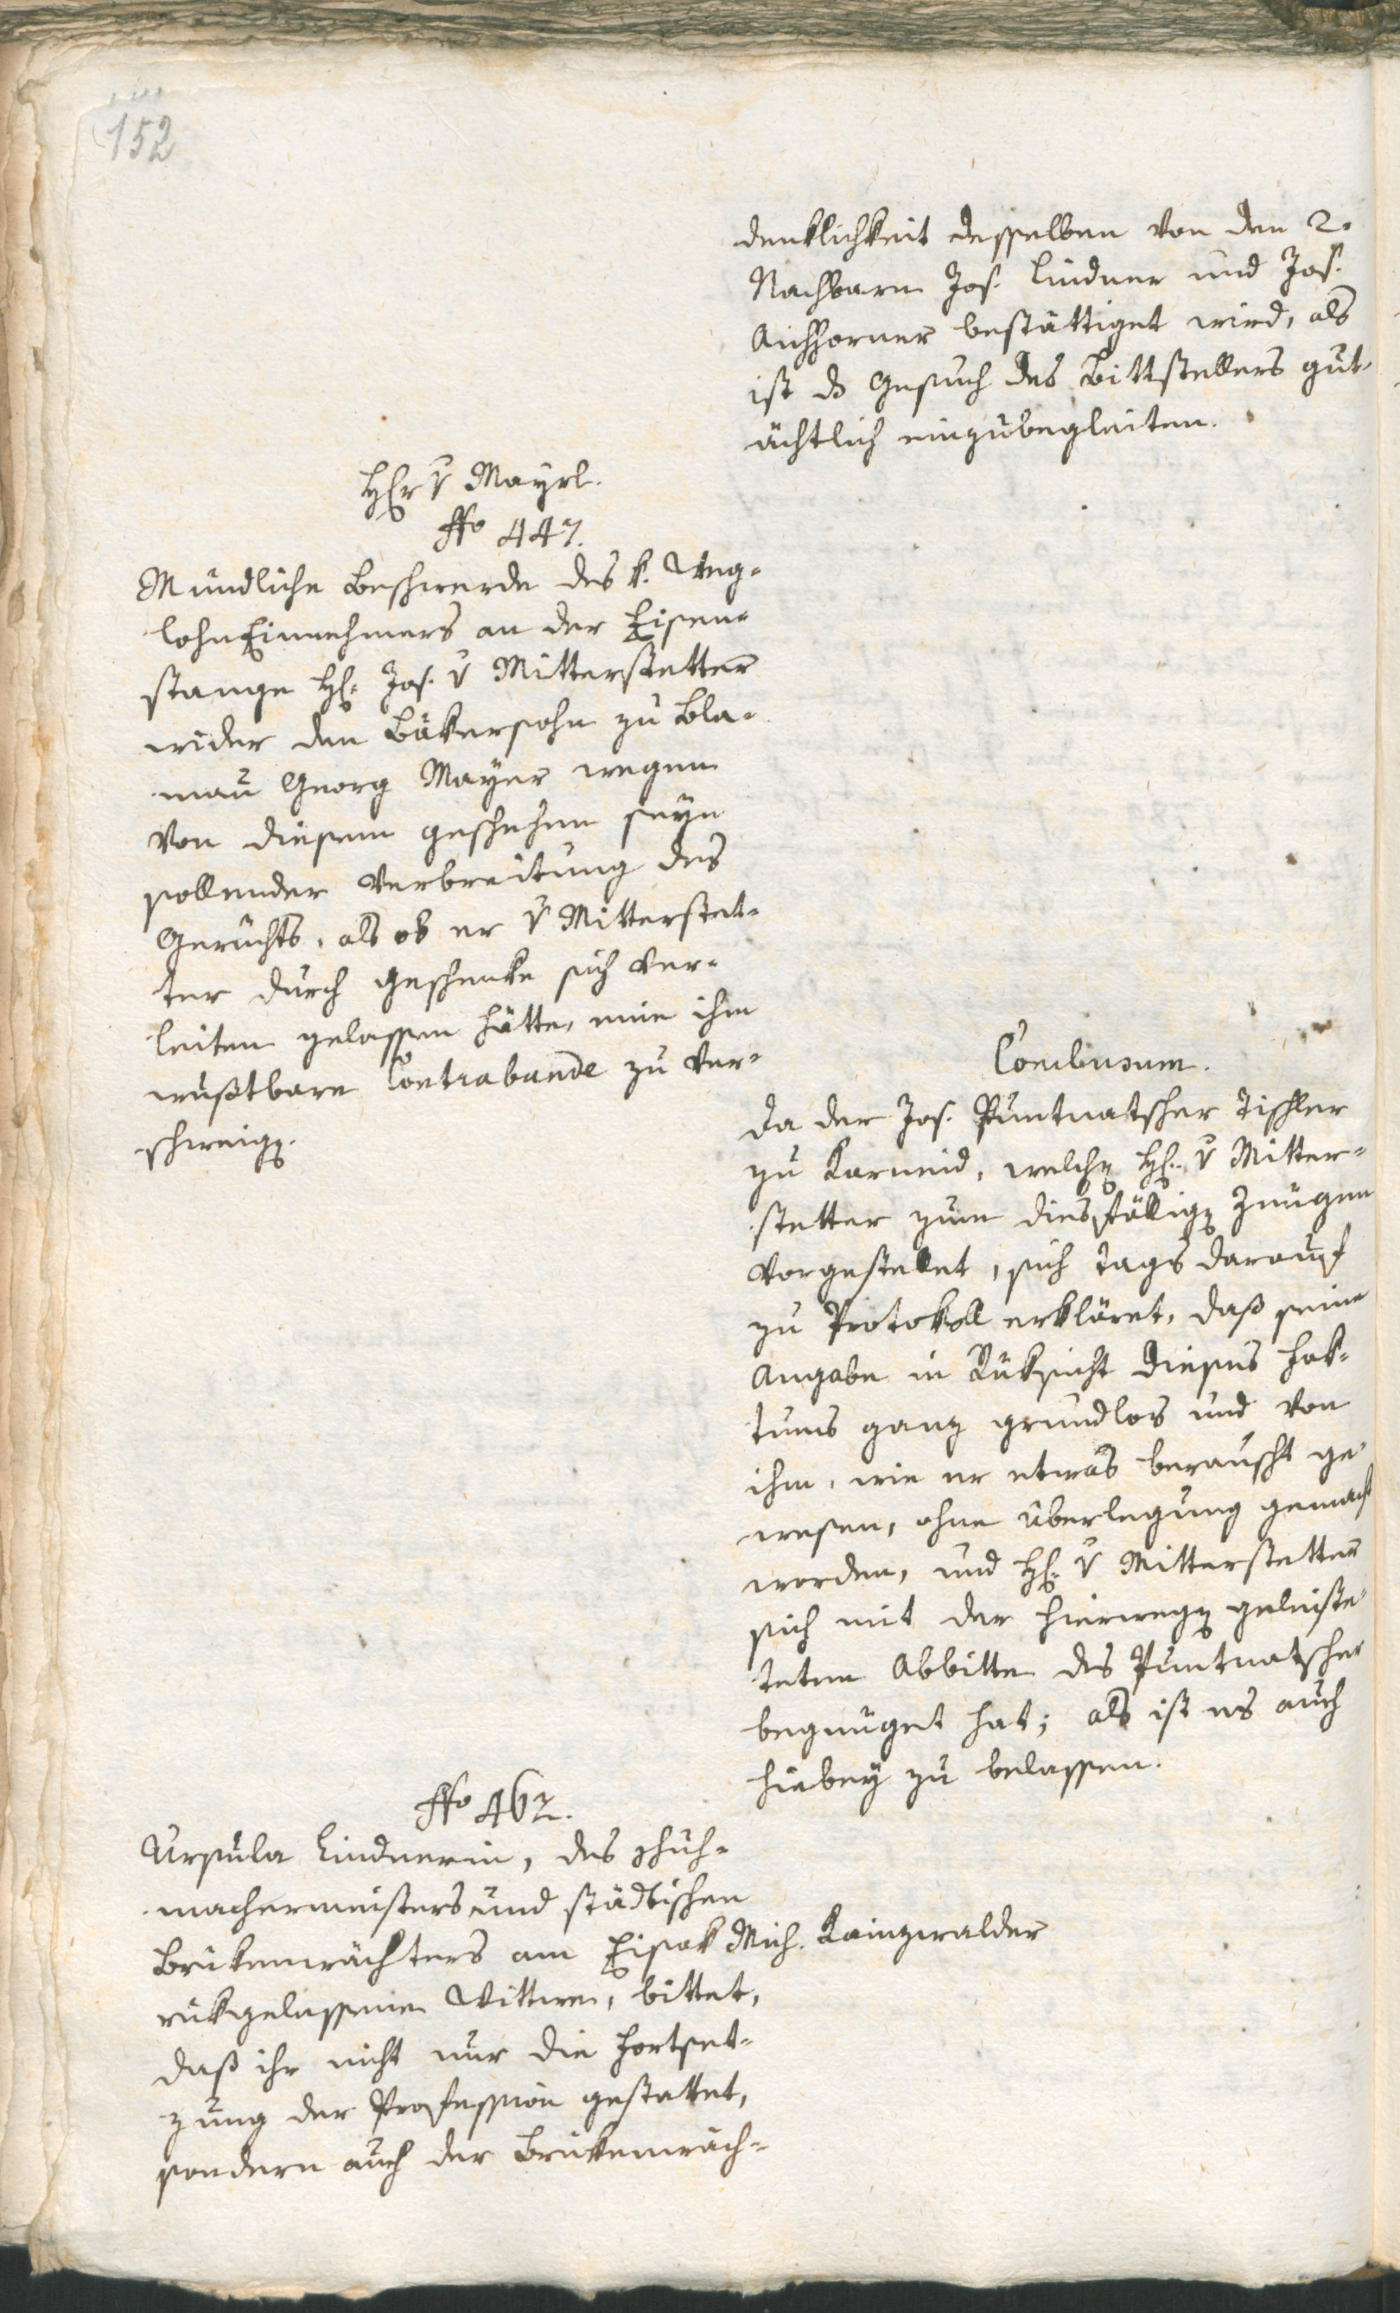 152
denklichkeit desselben von den 2.
Nachbarn Jos. Lindner und Jos.
Aichhorner bestättiget wird, als
ist ds Gesuch des Bittstellers gut-
ächtlich einzubegleiten.
H͠r v Mayrl.
No 447.
Mündliche Beschwerde des k. Weg-
lohnEinnehmers an der Eisen-
stange H. Jos. v Mitterstetter
wider den Bäkersohn zu Blu-
mau Georg Mayer wegen
von diesem geschehen seyn
sollender Verbreitung des
Gerüchts, als ob er v Mitterstet-
ter durch Geschenke sich ver-
leiten gelassen hätte, eine ihm
wußtbare Contrabande zu ver-
schweigen.
Conclusum.
Da der Jos. Puntnatscher Tischler
zu Karneid, welchen H. v Mitter-
stetter zum diesfälligen Zeugen
vorgestellet, sich tags darauf
zu Protokoll erkläret, daß seine
Angabe in Rüksicht dieses Fak-
tums ganz grundlos und von
ihm, wie er etwas berauscht ge-
wesen, ohne Überlegung gemacht
worden, und H. v Mitterstetter
sich mit der hierwegen geleiste-
teten Abbitte des Puntnatscher
begnüget hat; als ist es auch
hiebey zu belassen.
No 462.
Ursula Lindnerin, des Schuh-
machermeisters und städtischen
Brükenwächters am Eisak Mich. Kainzwalder
rükgelassene Wittwe, bittet,
daß ihr nicht nur die Fortset-
zung der Profession gestattet,
sondern auch der Brükenwäch-